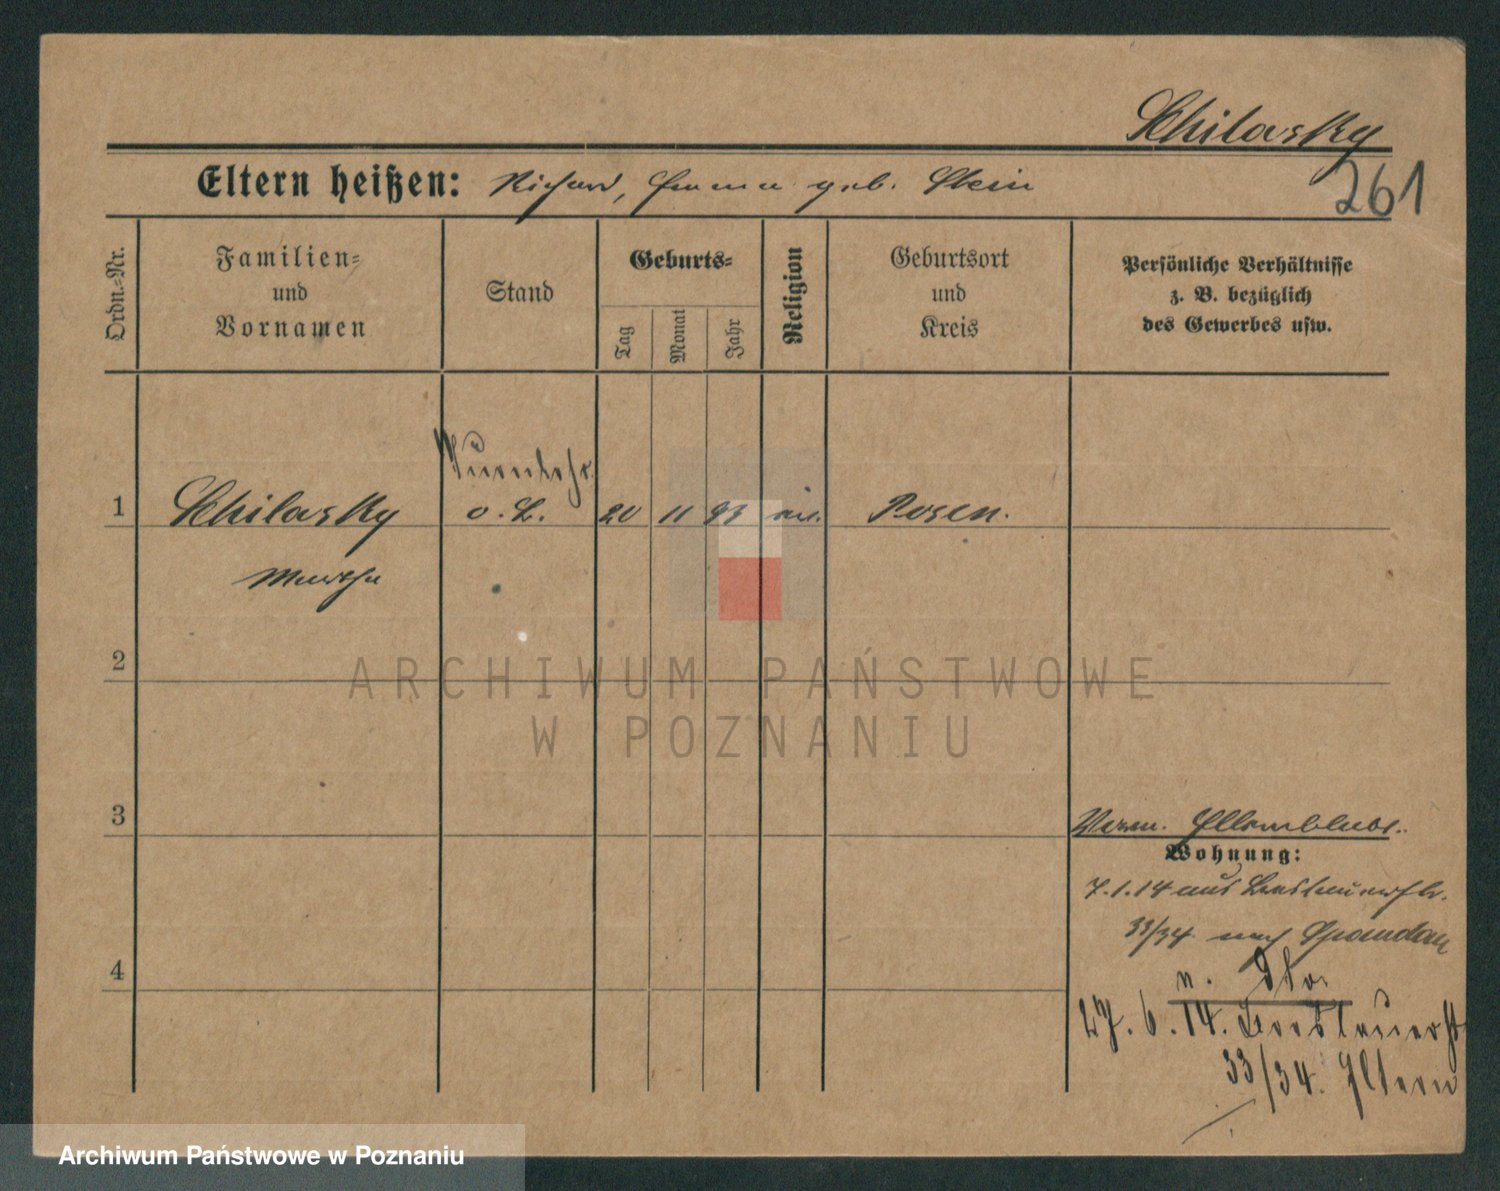 Schilasky
261
Eltern heißen: Richard, Emma geb. Stein
Ordn.-Nr.
Familien-
und
Vornamen
Stand
Geburts-
Tag
Monat
Jahr
Religion
Geburtsort
und
Kreis
Persönliche Verhältnisse
z. B. bezüglich
des Gewerbes usw.
1
Schilasky
Martha
Turnlehr.
o. L.
20
11
93
Posen.
2
3
4
Wohnung:
7.1.14 aus
33/34 nach Spandau
27.6.14.
33/34. Eltern
ARCHIWUM PAŃSTWOWE
W POZNANIU
Archiwum Państwowe w Poznaniu